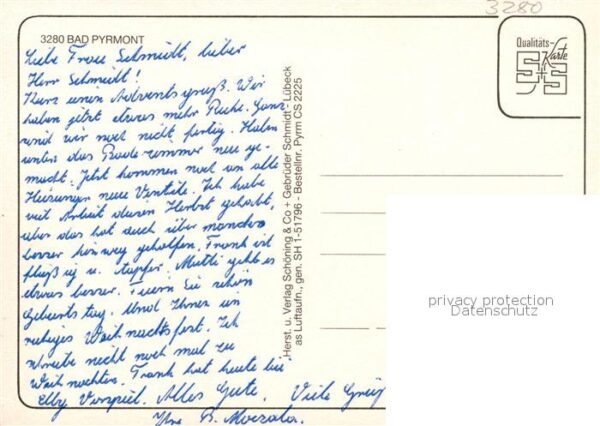 3280
3280 BAD PYRMONT
Qualitäts-
Karte
S+S
Liebe Frau Schmidt, lieber
Herr Schmidt!
Kurz einen Adventsgruß. Wir
haben jetzt etwas mehr Ruhe. Ganz
sind wir noch nicht fertig. Haben
unten das Badezimmer neu ge-
macht. Jetzt kommen noch an alle
Heizungen neue Ventile. Ich habe
viel Arbeit diesen Herbst gehabt,
aber das hat auch über manches
besser hinweg geholfen. Frank ist
fleißig u. tapfer. Mutti geht es
etwas besser. Feiern Sie schön
Geburtstag. Und Ihnen ein
ruhiges Weihnachtsfest. Ich
schreibe nicht noch mal zu
Weihnachten. Frank hat heute bei
Vorspiel. Alles Gute. Viele Grüß
Ihre B.
Herst. u. Verlag Schöning & Co + Gebrüder Schmidt · Lübeck
as Luftaufn., gen. SH 1-51796 - Bestellnr. Pyrm CS 2225
privacy protection
Datenschutz